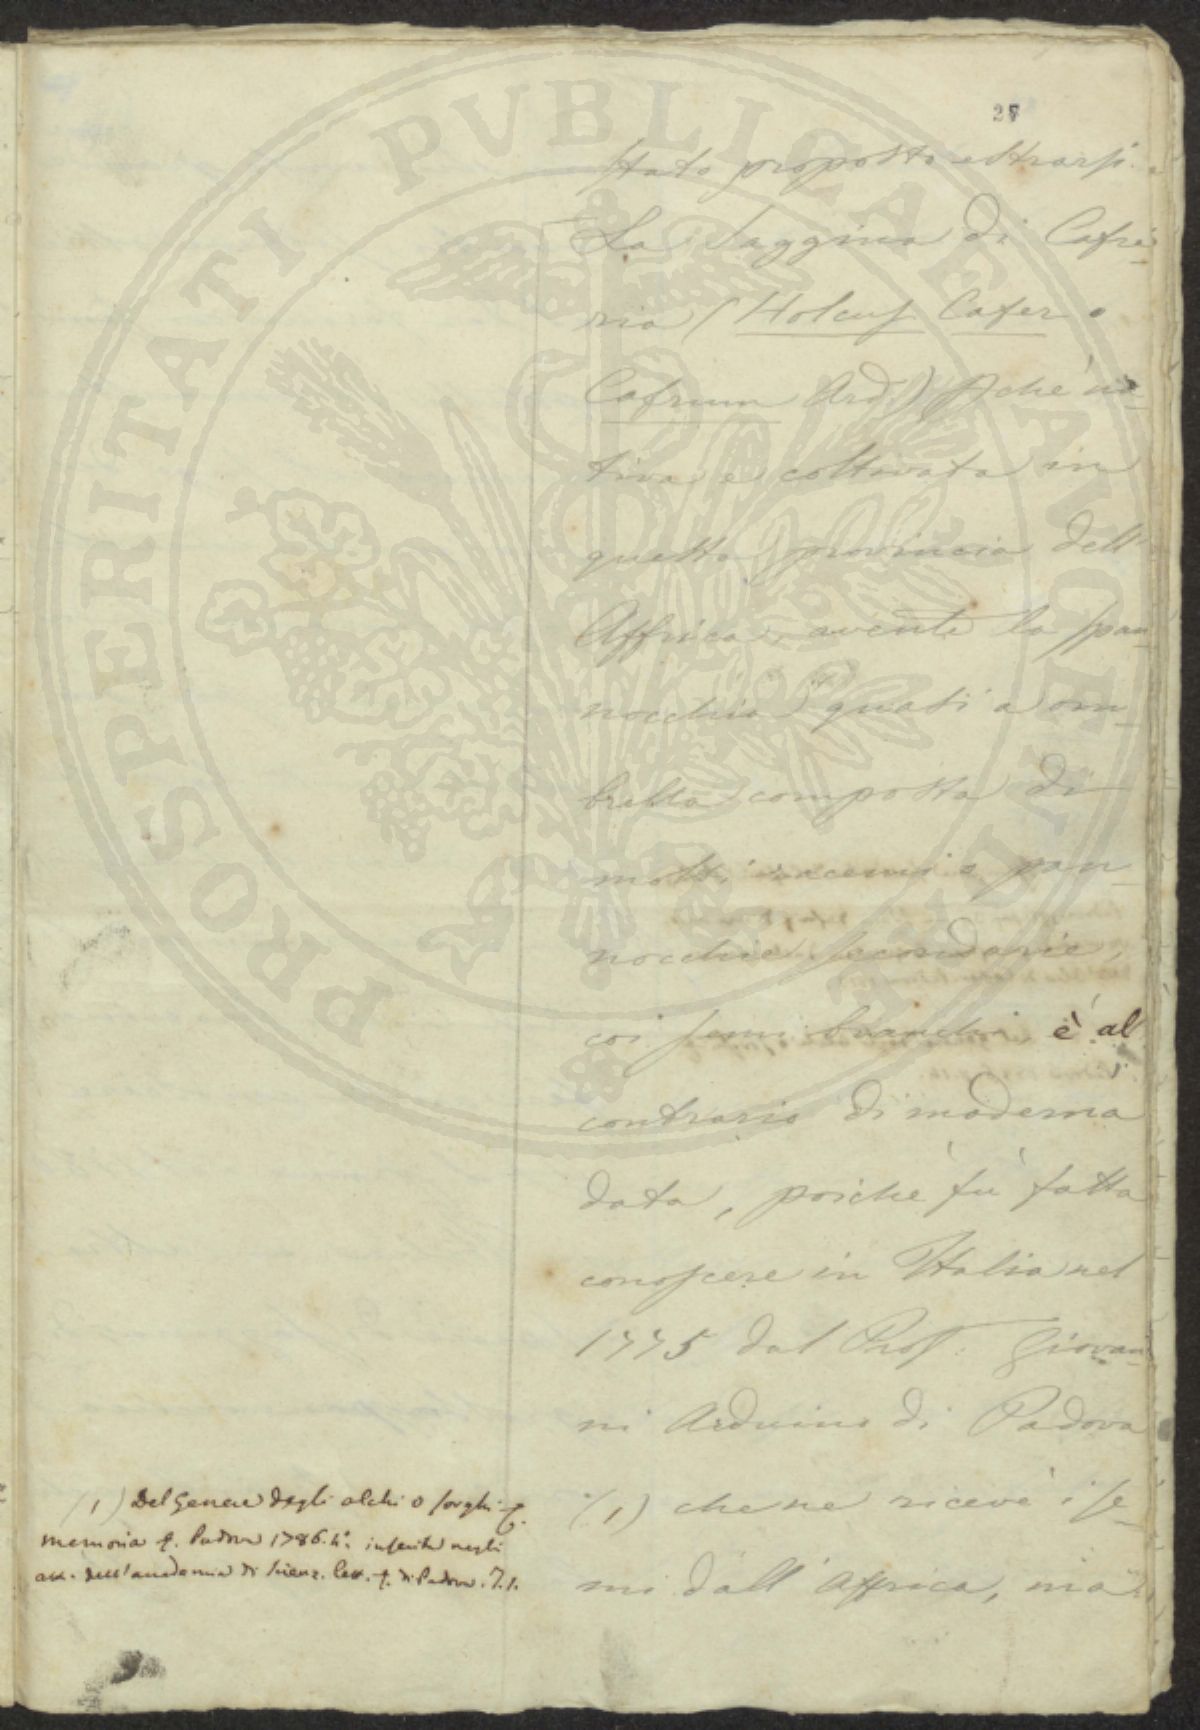 28
stato proposto estrarsi.
La Saggina di Cafre-
ria (Holcus Cafer o
Cafrum Ard.) che na-
tiva e coltivata in
questa provincia dell'
Affrica, avente la pan-
nocchia quasi a om-
brella composta di
molti racemi o pan-
nocchie secondarie,
coi semi bianchi è al
contrario di moderna
data, poichè fù fatta
conoscere in Italia nel
1775 dal Prof. Giovan-
ni Arduino di Padova
(1) che ne ricevè i se-
mi dall'Affrica, ma
(1) Del genere degli olchi o sorghi
memoria Padova 1786. 4.° inserita negli
att. dell'accademia di scienz. lett. di Padova. T. 1.
PROSPERITATI PVBLICAE AVGENDAE